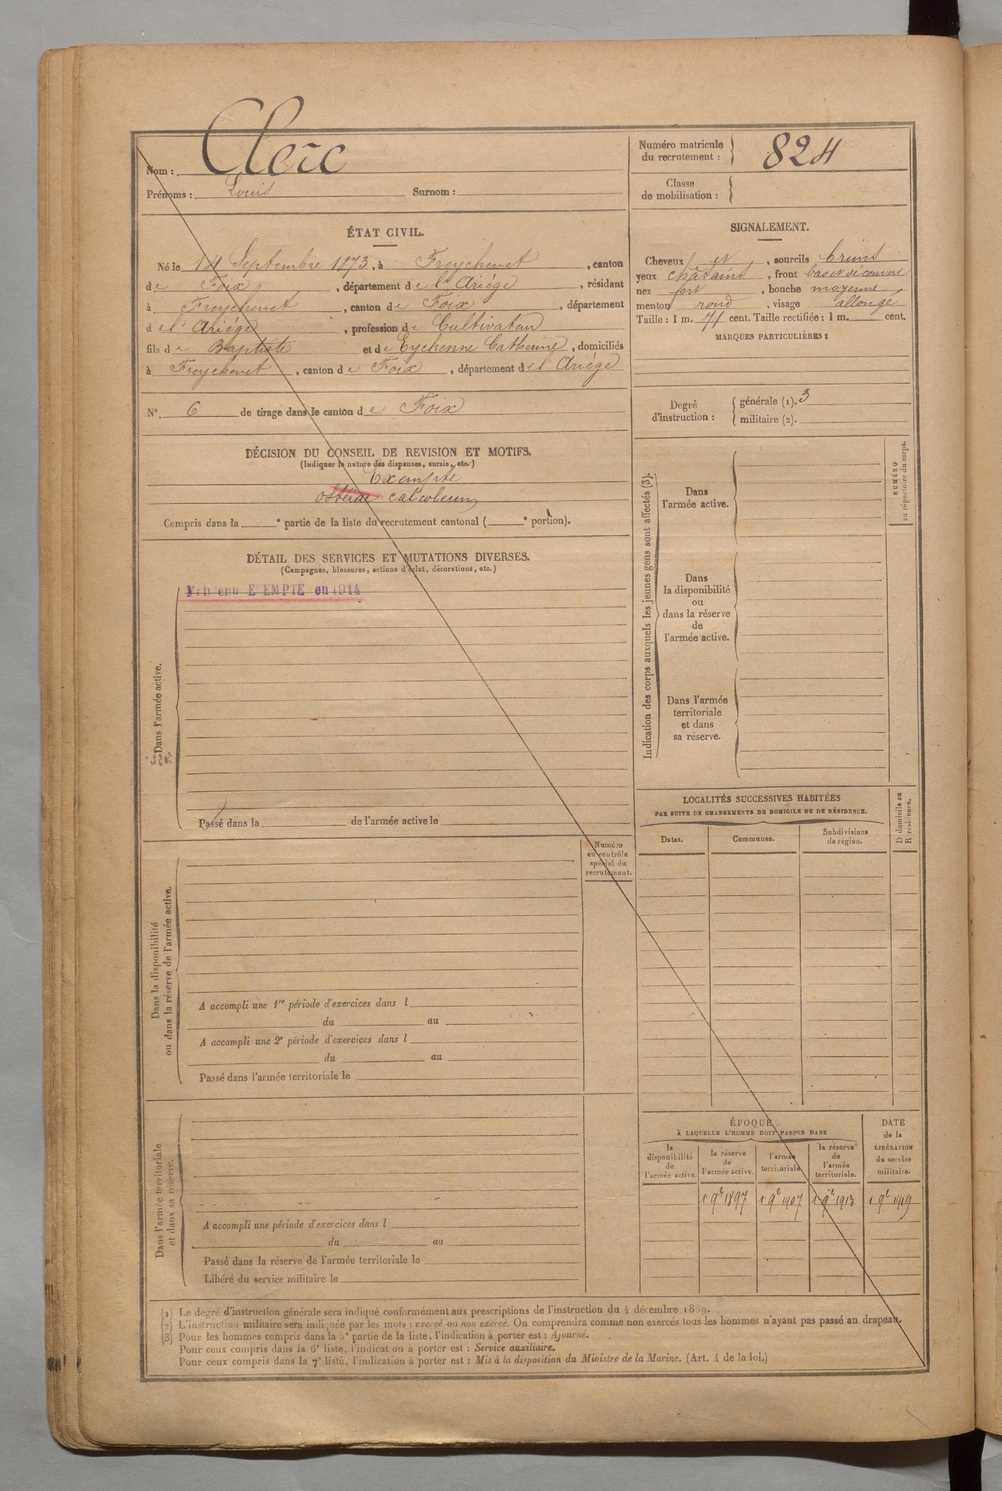 Nom : Clerc
Prénoms : Louis Surnom :
Numéro matricule
du recrutement : 824
Classe
de mobilisation :
ÉTAT CIVIL.
Né le 14 Septembre 1873, à Freychenet, canton
de Foix, département de l'Ariége, résidant
à Freychenet, canton de Foix, département
de l'Ariége, profession de Cultivateur
fils de Baptiste et de Eychenne Catherine, domiciliés
à Freychenet, canton de Foix, département de l'Ariége
N° 6 de tirage dans le canton de Foix
SIGNALEMENT.
Cheveux et, sourcils bruns
yeux chatains, front bas et découvert
nez fort, bouche moyenne
menton rond, visage allongé
Taille : 1 m. 71 cent. Taille rectifiée : 1 m. cent.
MARQUES PARTICULIÈRES :
Degré
d'instruction :
générale (1). 3
militaire (2).
DÉCISION DU CONSEIL DE REVISION ET MOTIFS.
(Indiquer la nature des dispenses, sursis, etc.)
Exempté
Compris dans la e partie de la liste du recrutement cantonal ( e portion).
DÉTAIL DES SERVICES ET MUTATIONS DIVERSES.
(Campagnes, blessures, actions d'éclat, décorations, etc.)
en 1914
Dans l'armée active.
Passé dans la de l'armée active le
Indication des corps auxquels les jeunes gens sont affectés (3).
Dans
l'armée active.
Dans
la disponibilité
ou
dans la réserve
de
l'armée active.
Dans l'armée
territoriale
et dans
sa réserve.
NUMÉRO
au répertoire du corps.
LOCALITÉS SUCCESSIVES HABITÉES
PAR SUITE DE CHANGEMENTS DE DOMICILE OU DE RÉSIDENCE.
Dates.
Communes.
Subdivisions
de région.
D. domicile ou
R. résidence.
Numéro
au contrôle
spécial du
recrutement.
Dans la disponibilité
ou dans la réserve de l'armée active.
A accompli une 1re période d'exercices dans l
du au
A accompli une 2e période d'exercices dans l
du au
Passé dans l'armée territoriale le
Dans l'armée territoriale
et dans sa réserve.
A accompli une période d'exercices dans l
du au
Passé dans la réserve de l'armée territoriale le
Libéré du service militaire le
ÉPOQUE
À LAQUELLE L'HOMME DOIT PASSER DANS
la
disponibilité
de
l'armée active.
la réserve
de
l'armée active.
l'armée
territoriale.
la réserve
de
l'armée
territoriale.
DATE
de la
LIBÉRATION
du service
militaire.
1 9e 1897 1 9e 1907 1 9e 1913 1 9e 1919
(1) Le degré d'instruction générale sera indiqué conformément aux prescriptions de l'instruction du 4 décembre 1889.
(2) L'instruction militaire sera indiquée par les mots : exercé ou non exercé. On comprendra comme non exercés tous les hommes n'ayant pas passé au drapeau.
(3) Pour les hommes compris dans la 5e partie de la liste, l'indication à porter est : Ajourné.
Pour ceux compris dans la 6e liste, l'indication à porter est : Service auxiliaire.
Pour ceux compris dans la 7e liste, l'indication à porter est : Mis à la disposition du Ministre de la Marine. (Art. 4 de la loi.)